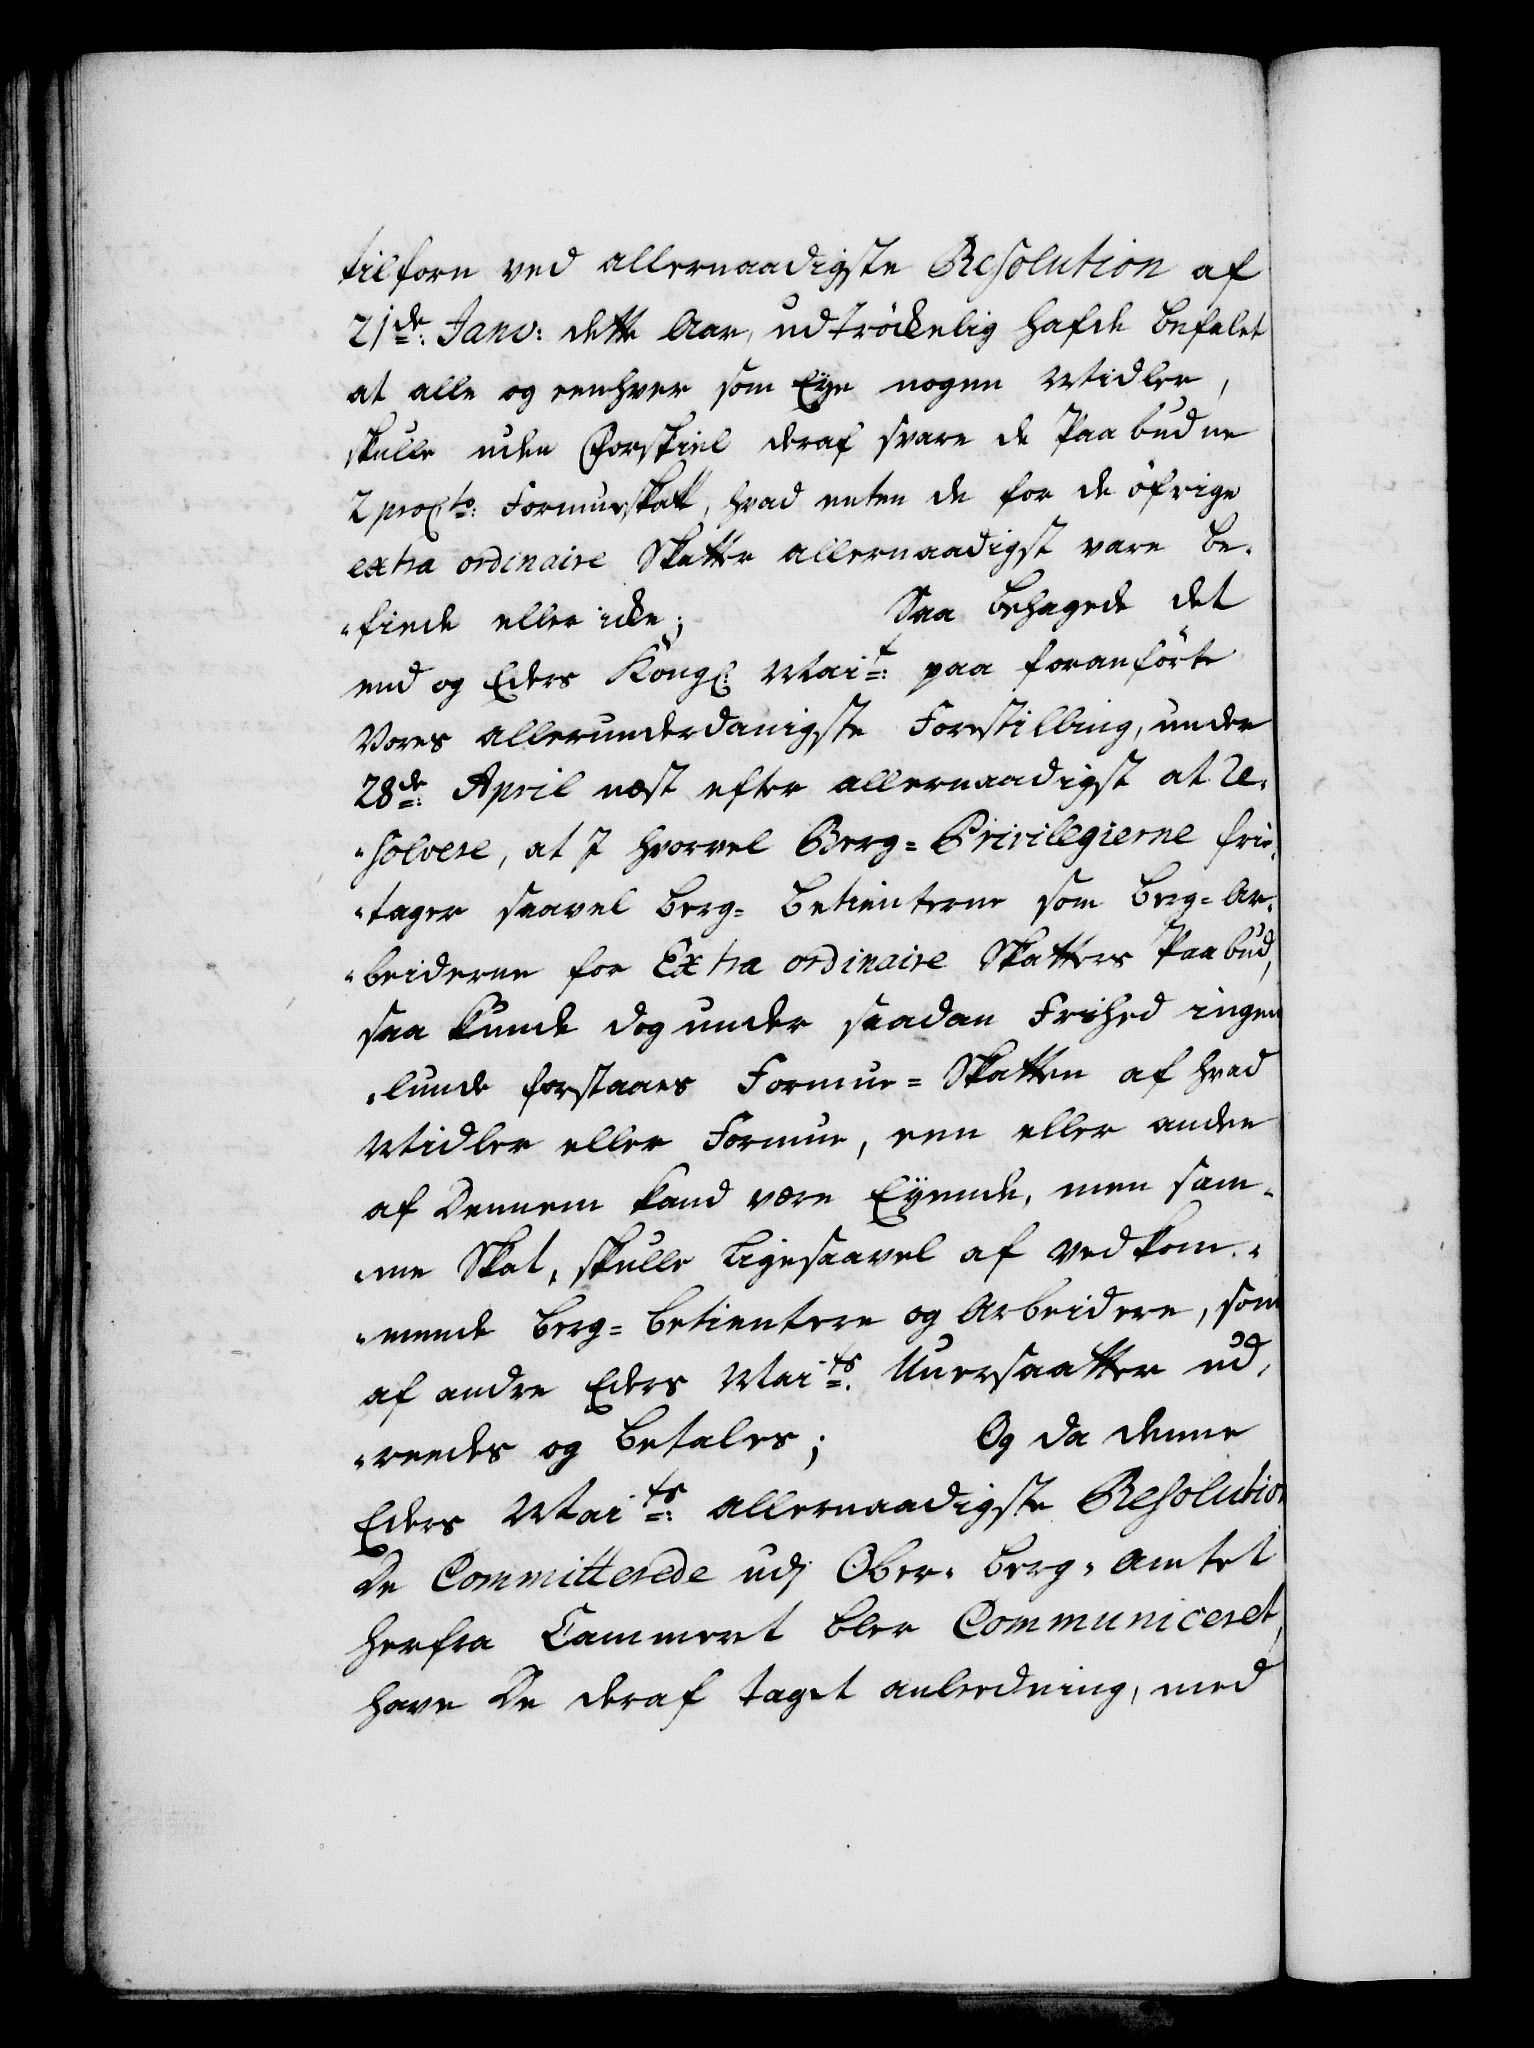 tilforn ved allernaadigste Resolution af
21de: Janv: dette Aar, udtröckelig hafde befalet
at alle og eenhver som Eye nogen Midler,
skulle uden Forskiel deraf svare de Paabudne
2 proCto: Formueskatt, hvad enten de for de öfrige
extra ordinaire Skatter allernaadigst vare be-
-friede eller icke; Saa behagede det
end og Eders Kongl: Mait: paa foranförte
Vores allerunderdanigste Forstilling, under
28de: April næst efter allernaadigst at re-
-solvere, at I hvorvel Berg-Privilegierne frie-
-tager saavel Berg-Betienterne som Berg-Ar-
-beiderne for Extra ordinaire Skatters Paabud,
saa kunde dog under saadan Frihed ingen
-lunde forstaaes Formue-Skatten af hvad
Midler eller Formue, een eller anden
af Dennem kand være Eyende, men sam-
-me Skat, skulle ligesaavel af vedkom-
-mende Berg-Betientere og Arbeidere, som
af andre Eders Maits: Unersaatter ud-
-reedes og betales; Og da denne
Eders Maits: allernaadigste Resolution
De Committerede udj Ober-Berg-Amtet
herfra Cammeret blev Communiceret,
have De deraf taget anleedning, med